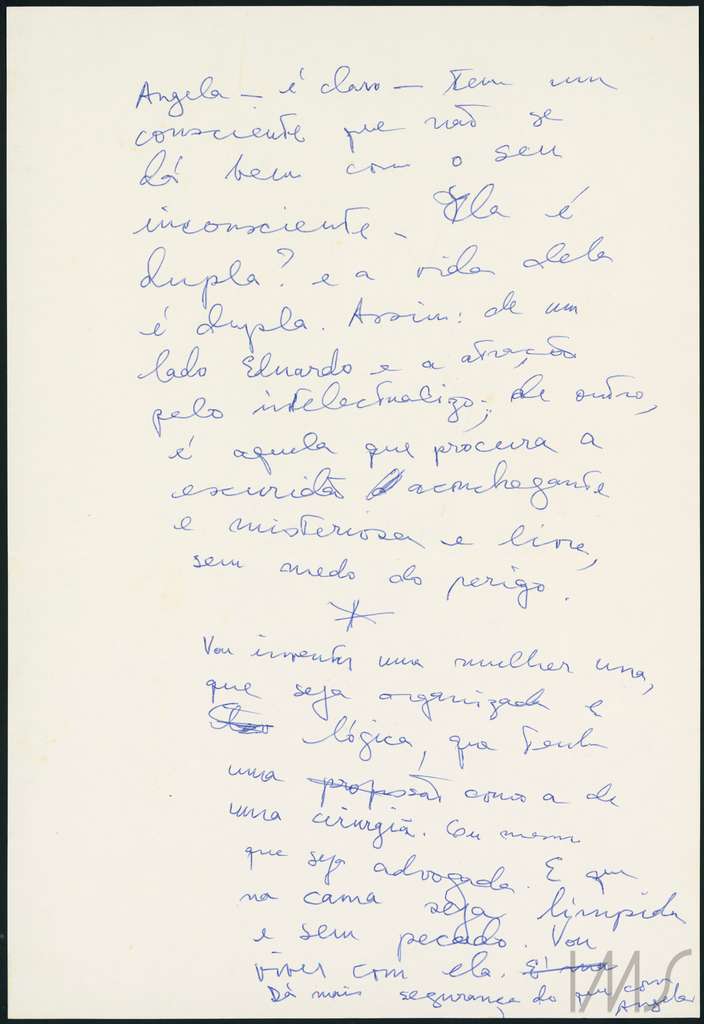 Angela — é claro — tem um
consciente que não se
dá bem com o seu
inconsciente. Ela é
dupla? e a vida dela
é dupla. Assim: de um
lado Eduardo e a atração
pelo intelectualizo; de outro,
é aquela que procura a
escuridão aconchegante
e misteriosa e livre,
sem medo do perigo.
*
Vou inventar uma mulher una,
que seja organizada e
lógica, que tenha
uma profissão como a de
uma cirurgiã. Ou mesmo
que seja advogada. E que
na cama seja límpida
e sem pecado. Vou
viver com ela. E na
Dá mais segurança do que com
Angela
IMS